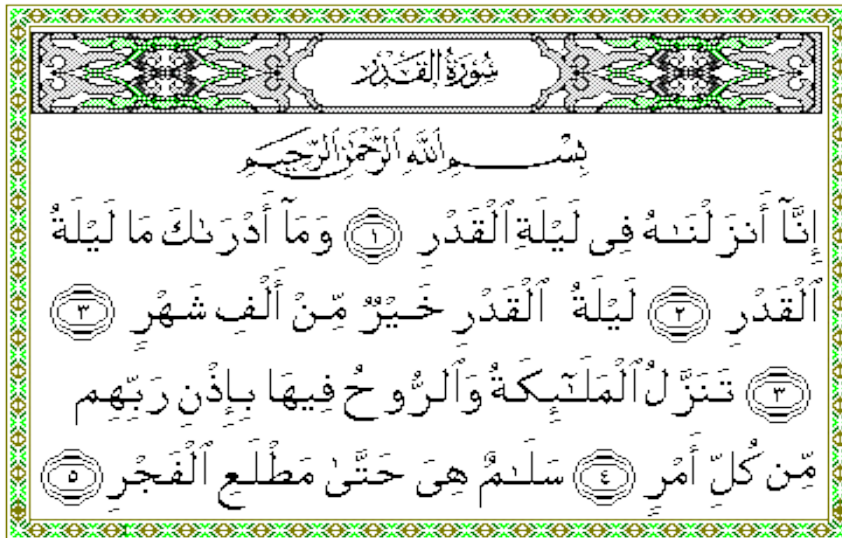 سُورَةُ الْقَدْرِ
بِسْمِ اللَّهِ الرَّحْمَٰنِ الرَّحِيمِ
إِنَّآ أَنزَلْنَـٰهُ فِى لَيْلَةِ ٱلْقَدْرِ ١ وَمَآ أَدْرَىٰكَ مَا لَيْلَةُ
ٱلْقَدْرِ ٢ لَيْلَةُ ٱلْقَدْرِ خَيْرٌ مِّنْ أَلْفِ شَهْرٍ ٣
٣ تَنَزَّلُ ٱلْمَلَـٰٓئِكَةُ وَٱلرُّوحُ فِيهَا بِإِذْنِ رَبِّهِم
مِّن كُلِّ أَمْرٍ ٤ سَلَـٰمٌ هِىَ حَتَّىٰ مَطْلَعِ ٱلْفَجْرِ ٥